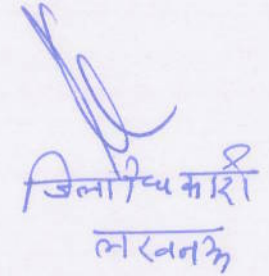 जिलाधिकारी
लखनऊ